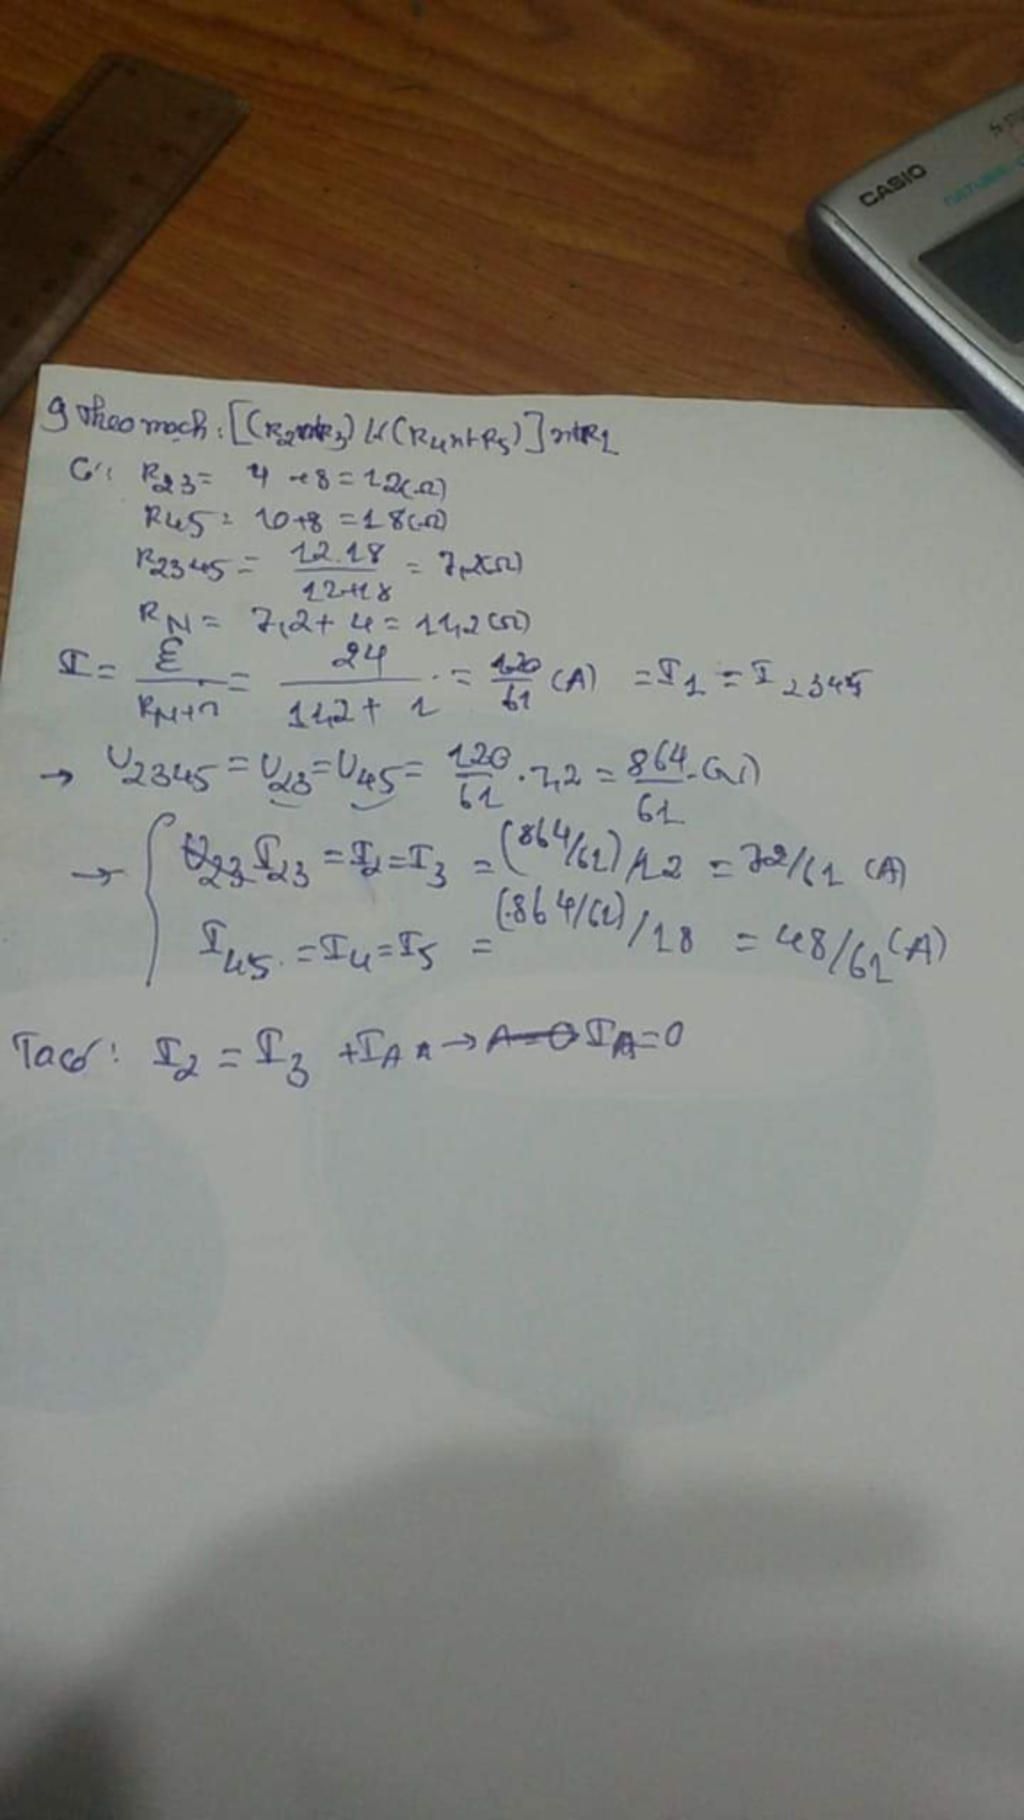 CASIO
NATURAL-
9 theo mạch: [(R2ntR3) // (R4ntR5)] ntR1
Có: R23 = 4+8 = 12(Ω)
R45 = 10+8 = 18(Ω)
R2345 = 12.18 / 12+18 = 7,2(Ω)
RN = 7,2 + 4 = 11,2(Ω)
I = ℰ / RN+r = 24 / 11,2 + 1 = 120/61 (A) = I1 = I2345
→ U2345 = U23 = U45 = 120/61 . 7,2 = 864/61 (V)
→ { I23 = I2 = I3 = (864/61)/12 = 72/61 (A)
I45 = I4 = I5 = (864/61)/18 = 48/61 (A)
Ta có: I2 = I3 + IA → IA = 0